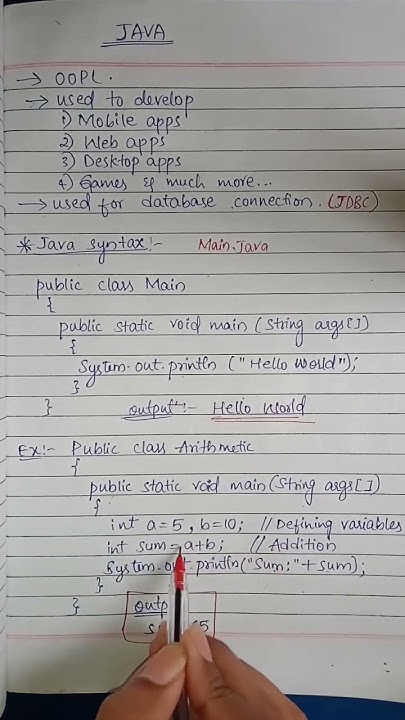 JAVA
→ OOPL.
→ used to develop
1) Mobile apps
2) Web apps
3) Desktop apps
4) Games & much more...
→ used for database connection. (JDBC)
* Java syntax:- Main.java
public class Main
{
public static void main (String args[])
{
System.out.println ("Hello World");
}
} output:- Hello World
Ex:- Public class Arithmetic
{
public static void main(String args[])
{
int a=5, b=10; // Defining variables
int sum=a+b; // Addition
System.out.println("Sum:"+sum);
}
}